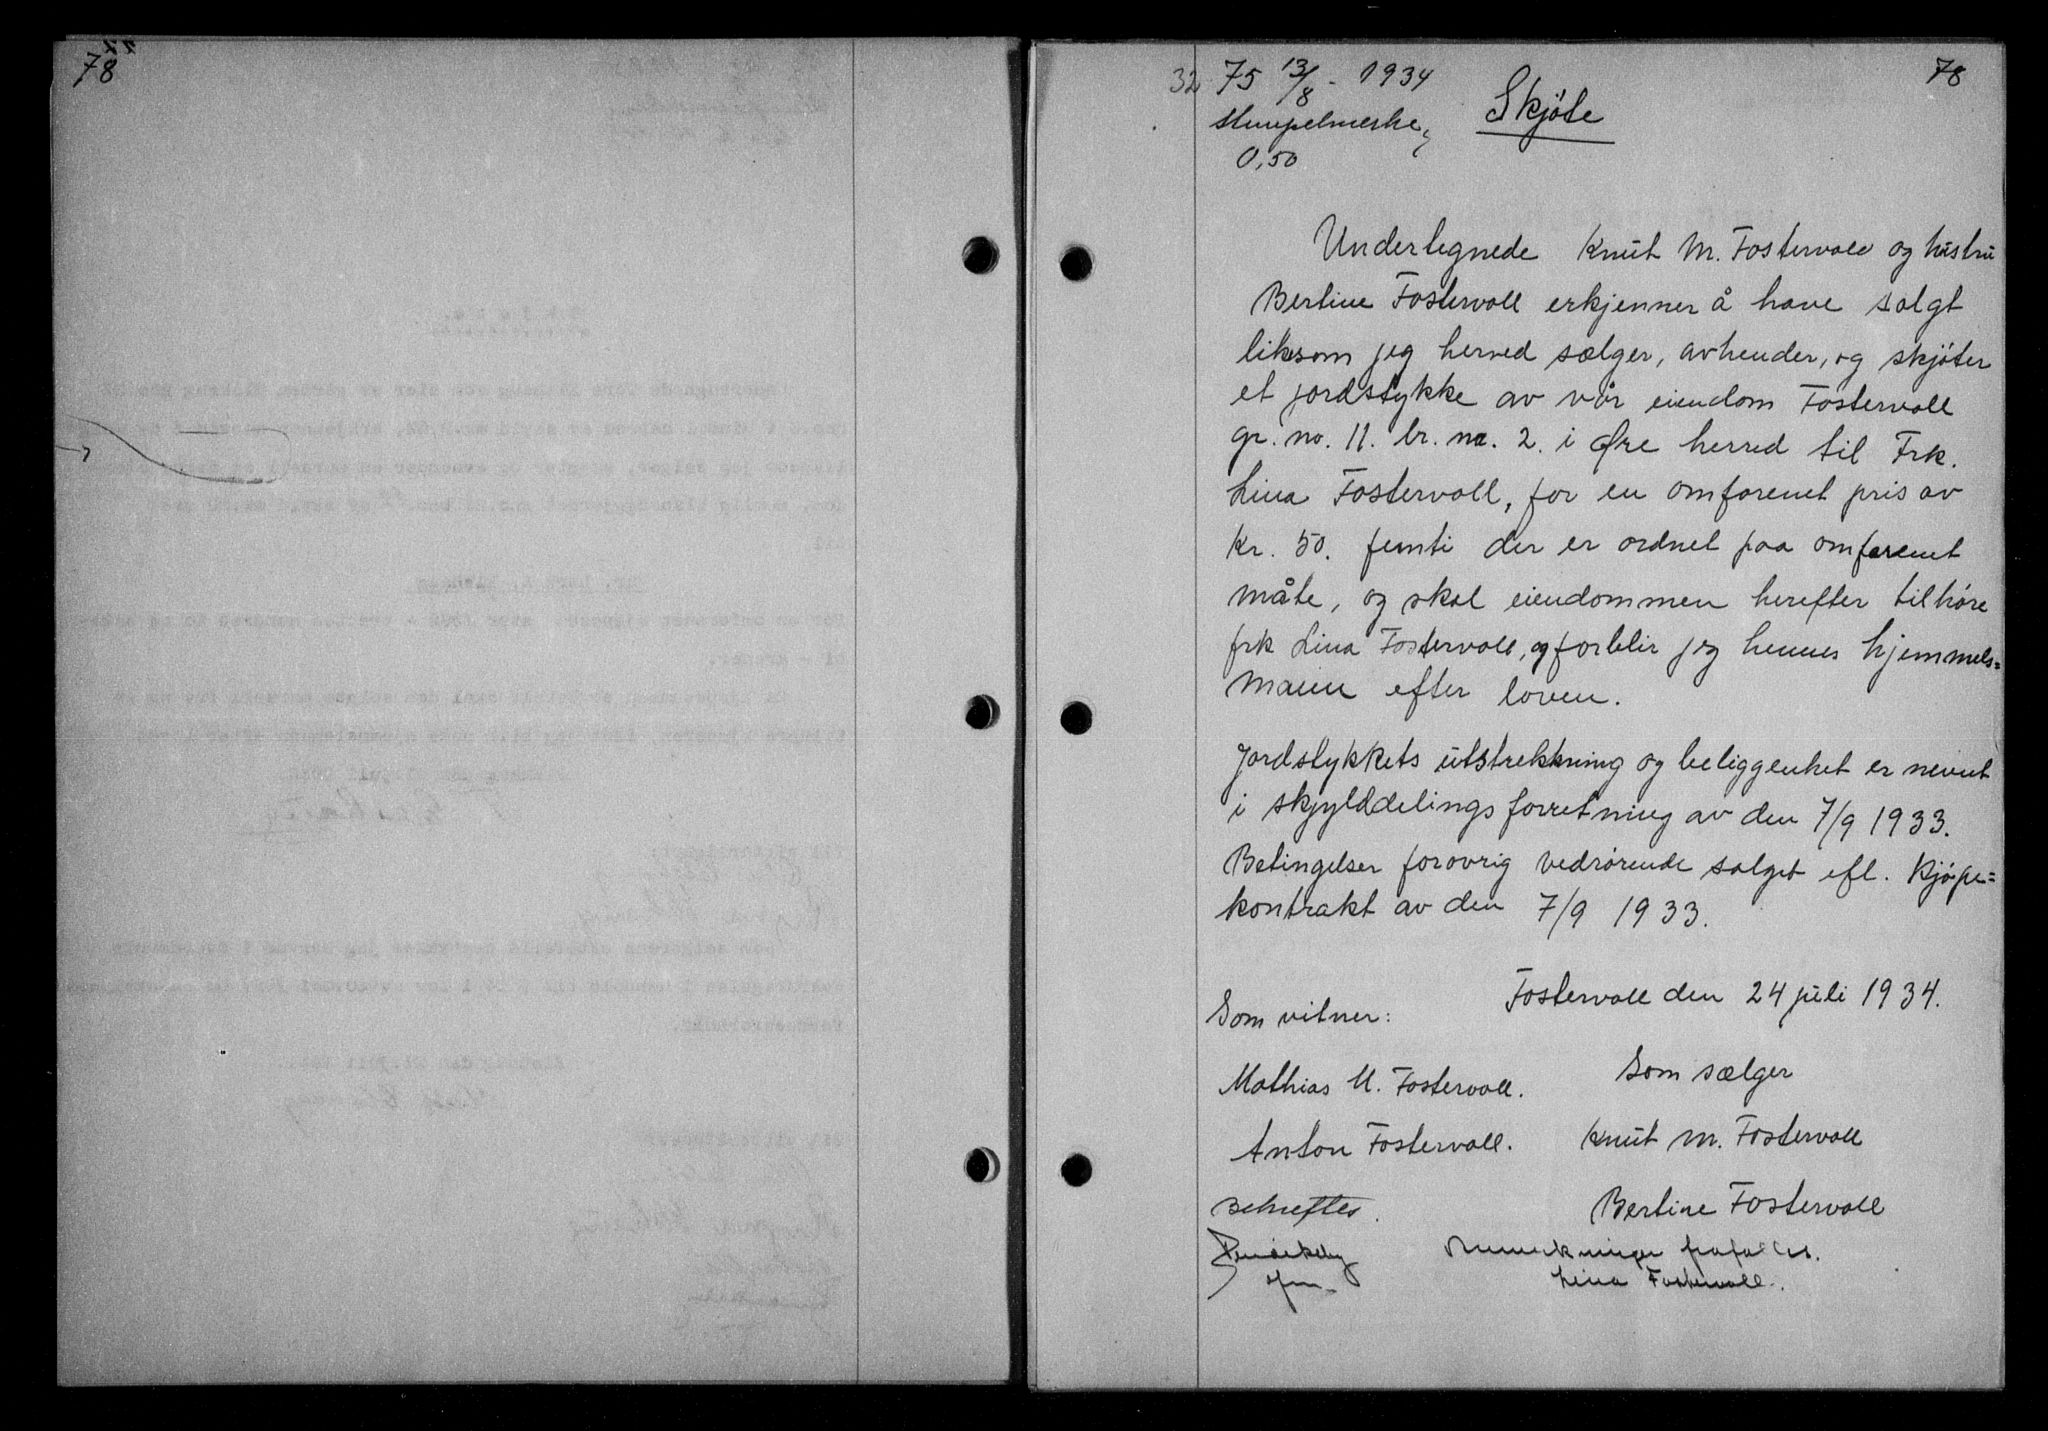 78
32 75 13/8 - 1934
78
Skjöte
Stempelmerke
0,50
Undertegnede Knut M. Fostervoll og hustru
Bertine Fostervoll erkjenner å have solgt
liksom jeg herved sælger, avhender, og skjöter
et jordstykke av vår eiendom Fostervoll
gr. no. 11. br. no. 2. i Øre herred til Frk.
Lina Fostervoll, for en omforenet pris av
Kr. 50. femti der er ordnet paa omforenet
måte, og skal eiendommen herefter tilhøre
frk Lina Fostervoll, og forblir jeg hennes hjemmels=
mann efter loven.
Jordstykkets utstrekkning og beliggenhet er nevnt
i skjylddelings forretning av den 7/9 1933.
Betingelser forøvrig vedrørende salget efl. Kjøpe=
kontrakt av den 7/9 1933.
Fostervoll den 24 juli 1934.
Som vitner:
Som sælger
Mathias M. Fostervoll.
Knut M. Fostervoll
Anton Fostervoll.
Bertine Fostervoll
Bekreftes.
Anmerkninger frafalles.
Lina Fostervoll.